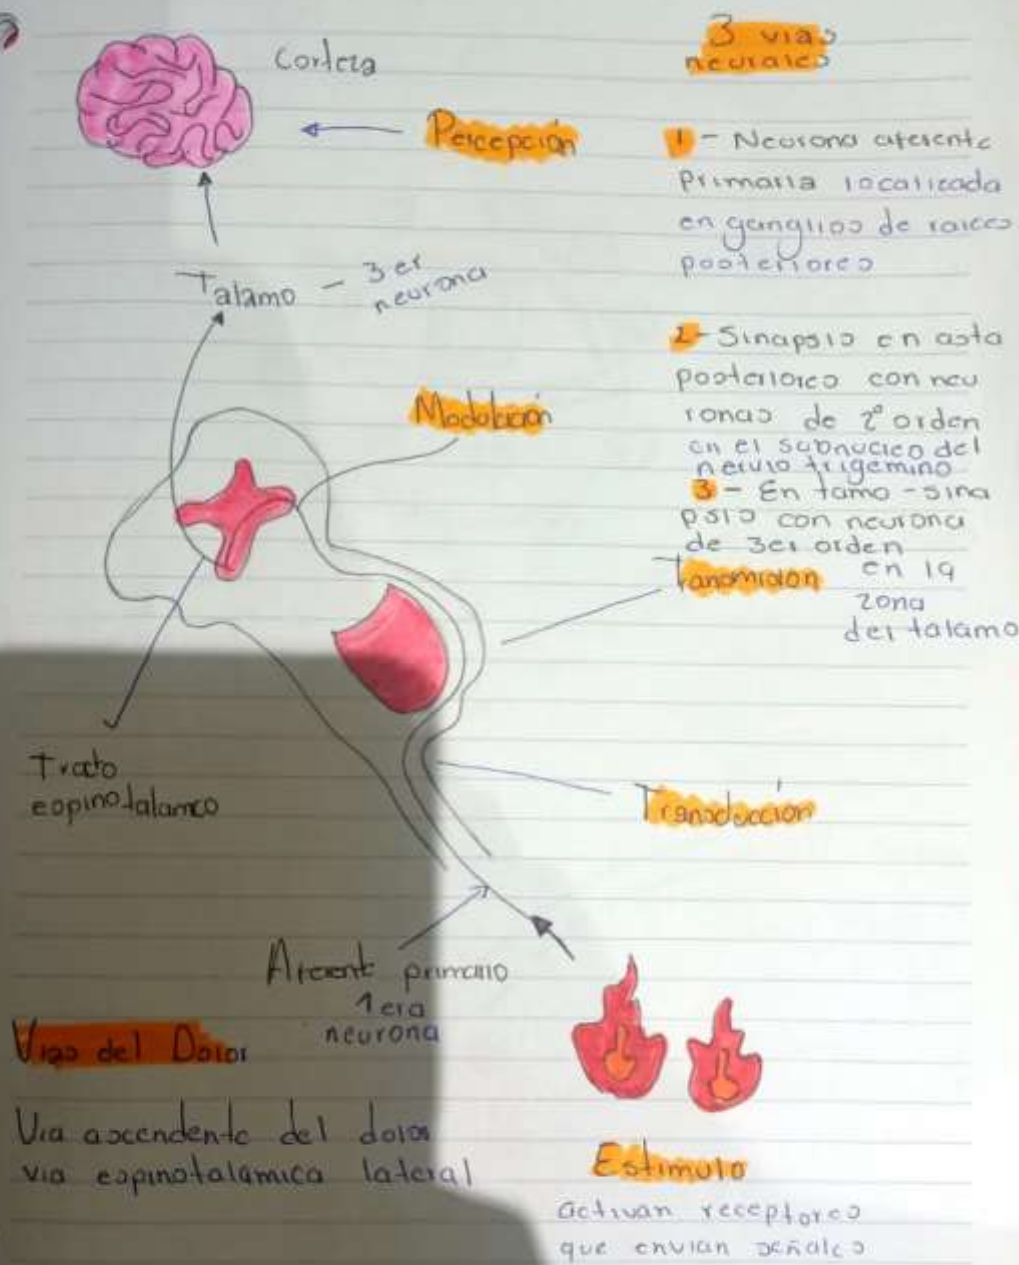 Corteza
Percepción
Talamo - 3er
neurona
Modulación
Tracto
espinotalamco
Transducción
Aferent primario
1era
neurona
Vias del Dolor
Via ascendente del dolor
via espinotalamica lateral
Estimulo
activan receptores
que envian señales
3 vias
neurales
1 - Neurona aferente
primaria localizada
en ganglios de raices
posteriores
2 - Sinapsis en asta
posteriores con neu
ronas de 2º orden
en el subnucleo del
nervio trigemino
3 - En tamo - sina
psis con neurona
de 3er orden
en la
zona
del talamo
Tansmision